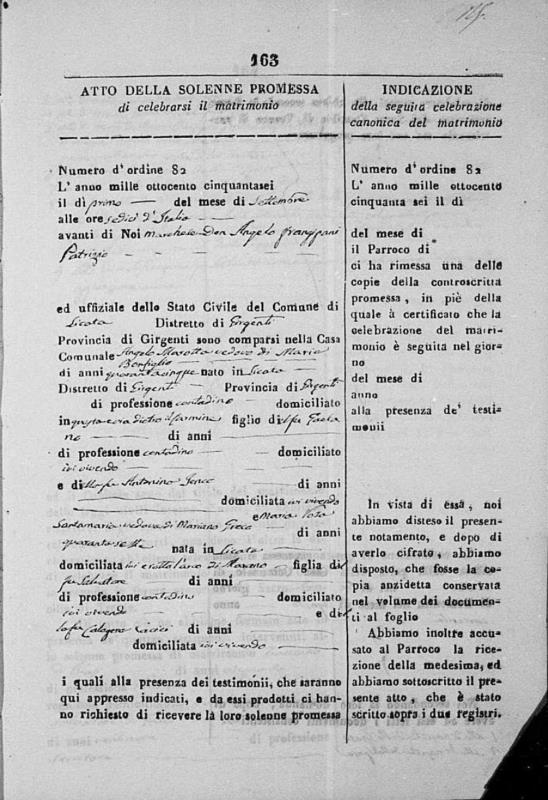 163
ATTO DELLA SOLENNE PROMESSA
di celebrarsi il matrimonio
Numero d' ordine 82
L' anno mille ottocento cinquantasei
il dì primo del mese di Settembre
alle ore sedici d'Italia
avanti di Noi Marchese Don Angelo Frangipani
Patrizio
ed uffiziale dello Stato Civile del Comune di
Licata Distretto di Girgenti
Provincia di Girgenti sono comparsi nella Casa
Comunale Angelo Marotta vedovo di Maria
Bonfiglio
di anni quarantacinque nato in Licata
Distretto di Girgenti Provincia di Girgenti
di professione contadino domiciliato
in questa dietro il Carmine figlio di Gaeta
no di anni
di professione contadino domiciliato
ivi vivendo
e di Antonina di anni
domiciliata ivi vivendo
e Maria
Santamaria vedova di Mariano Greco
di anni
quaranta sette
nata in Licata
domiciliata ivi sotto l'arco di Marano figlia di
fu Salvatore di anni
di professione contadino domiciliato
ivi vivendo
e di
Calogera di anni
domiciliata ivi vivendo
i quali alla presenza dei testimonii, che saranno
qui appresso indicati, e da essi prodotti ci han-
no richiesto di ricevere là loro solenne promessa
INDICAZIONE
della seguita celebrazione
canonica del matrimonio
Numero d' ordine 82
L' anno mille ottocento
cinquanta sei il dì
del mese di
il Parroco di
ci ha rimessa una delle
copie della controscritta
promessa, in piè della
quale à certificato che la
celebrazione del matri-
monio è seguita nel gior-
no
del mese di
anno
alla presenza de' testi-
monii
In vista di essa, noi
abbiamo disteso il presen-
te notamento, e dopo di
averlo cifrato, abbiamo
disposto, che fosse la co-
pia anzidetta conservata
nel volume dei documen-
ti al foglio
Abbiamo inoltre accu-
sato al Parroco la rice-
zione della medesima, ed
abbiamo sottoscritto il pre-
sente atto, che è stato
scritto sopra i due registri.